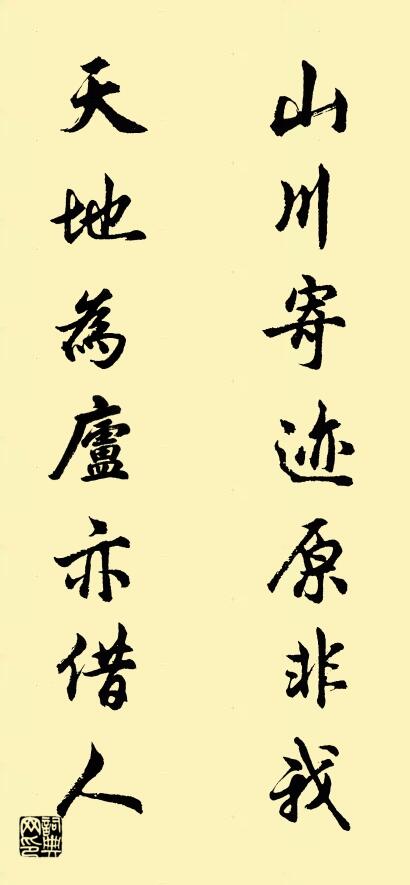 山川寄迹原非我
天地為廬亦借人
詞典网印